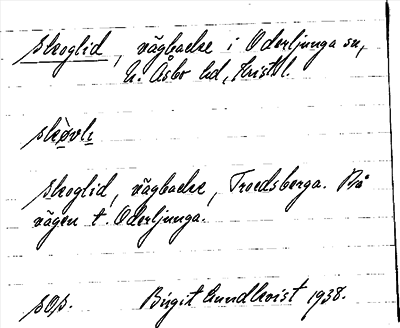 Skoglid, vägbacke i Oderljunga sn,
N. Åsbo hd, Krist. l.
Skoglid, vägbacke, Troedsberga. På
vägen t. Oderljunga.
sop. Birgit Lundkvist 1938.